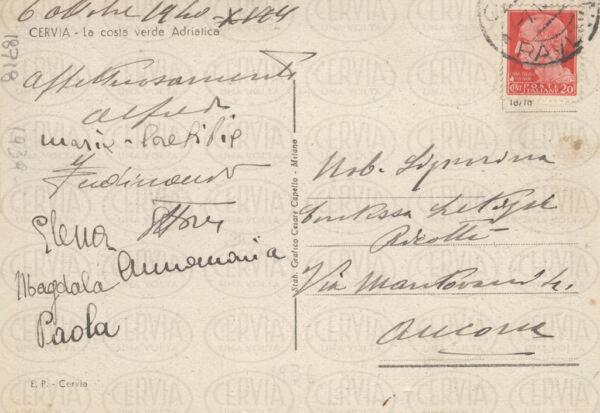 6 Ottobre 1940 - XVIII
CERVIA - La costa verde Adriatica
Affettuosamente
Alfredo
Maria-Letitia
Ferdinando
Elena
Magdala Annamaria
Paola
E. P. - Cervia
Stab. Grafico Cesare Capello - Milano
18718
1939
RAV
POSTE ITALIANE
CENT 20
18718
Nob. Signorina
Contessa
Ricotti
Via Mantovani 4.
Ancona
CERVIA
UNA VOLTA